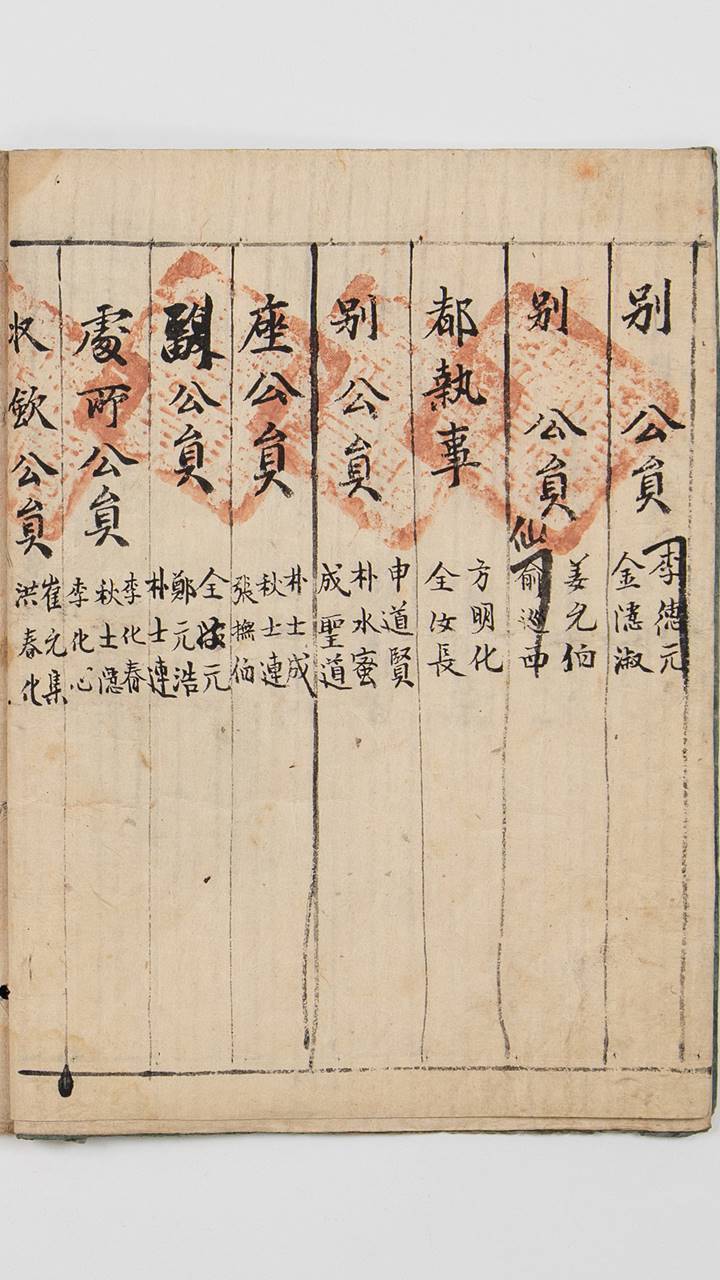 別 公員
李德元
金憲淑
別 公員
姜允伯
仙
俞 西
都執事
方明化
全汝長
別公員
申道賢
朴水蜜
成聖道
座公員
朴士成
秋士連
張撫伯
副公員
全 元
鄭元浩
朴士連
處所公員
李化春
秋士隱
李化心
收斂公員
崔允集
洪春化